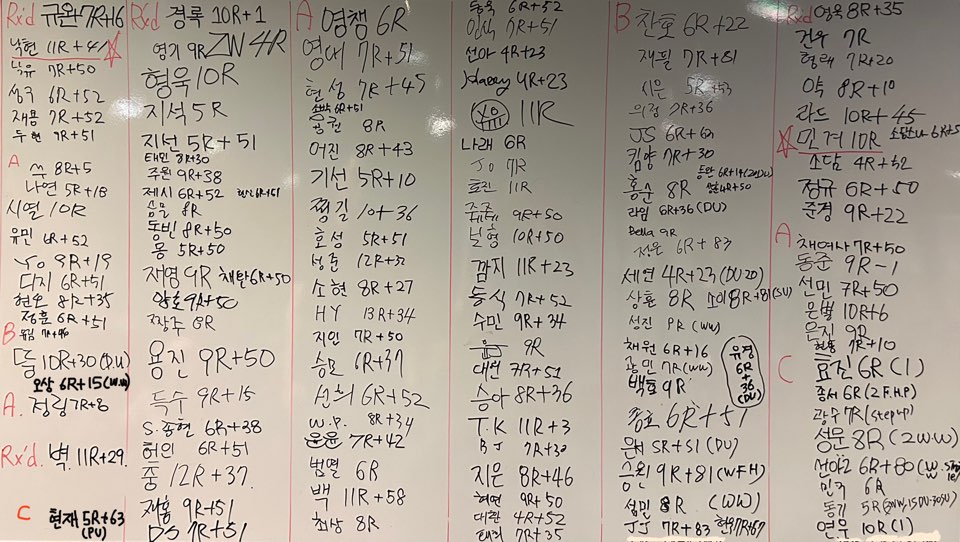 Rx'd 규완 7R+16
낙현 11R+41
낙유 7R+50
성구 6R+52
재용 7R+52
두현 7R+51
A
쑤 8R+5
나연 5R+18
시열 10R
유민 6R+52
다지 6R+51
현호 8R+35
정훈 6R+51
B
뚬 10R+30 (D.U)
오상 6R+15 (W.W)
A. 정림 7R+8
Rx'd. 벽. 11R+29.
C 현재 5R+63
(PU)
Rx'd 경록 10R+1
영기 9R
형욱 10R
지석 5R
지선 5R+51
태민 8R+30
주원 9R+38
제시 6R+52
승물 8R
동빈 8R+50
몽 5R+50
재영 9R 채탄 6R+50
짱수 8R
용진 9R+50
득수 9R+15
S.종현 6R+38
허인 6R+51
중 12R+37
재홍 9R+51
DS 7R+51
A 영쟁 6R
영대 7R+51
현성 7R+45
8R
어진 8R+43
기선 5R+10
찡길 10+36
호성 5R+51
성준 12R+32
소현 8R+27
HY 13R+34
지인 7R+50
승모 6R+37
선희 6R+52
W.P. 8R+34
윤윤 7R+42
범열 6R
백 11R+58
최상 8R
6R+52
7R+51
선아 4R+23
Harry 4R+23
YO 11R
나래 6R
Jo 7R
효진 11R
9R+50
널형 10R+50
깜지 11R+23
동식 7R+52
수민 9R+34
9R
대현 7R+51
승아 8R+36
T.K 11R+3
BJ 7R+30
지은 8R+46
혜연 9R+50
대환 4R+52
태희 7R+35
B 찬호 6R+22
재필 7R+81
시은 5R+53
의정 7R+36
JS 6R+60
킴양 7R+30
홍순 8R
라임 6R+36 (DU)
Bella 9R
정은 6R+83
세연 4R+23 (DU 20)
상훈 8R 소이 8R+81 (SU)
성진 8R (WW)
채원 6R+16
광민 7R (WW)
백호 9R
유경
6R
+
36
(DU)
종호 6R+51
은비 5R+51 (DU)
승원 9R+81 (WFH)
성민 8R (WW)
JJ 7R+83 현우 7R+67
Rx'd 영욱 8R+35
건우 7R
형래 7R+20
약 8R+10
라드 10R+45
민겨 10R
소담 4R+52
정규 6R+50
준경 9R+22
A
채여사 7R+50
동준 9R-1
선민 7R+50
은별 10R+6
은진 9R
현용 7R+10
C 효진 6R (1)
종서 6R (2 F.H.P)
광수 7R (step up)
성문 8R (2WW)
민국 6R
동기 5R
연우 10R (1)